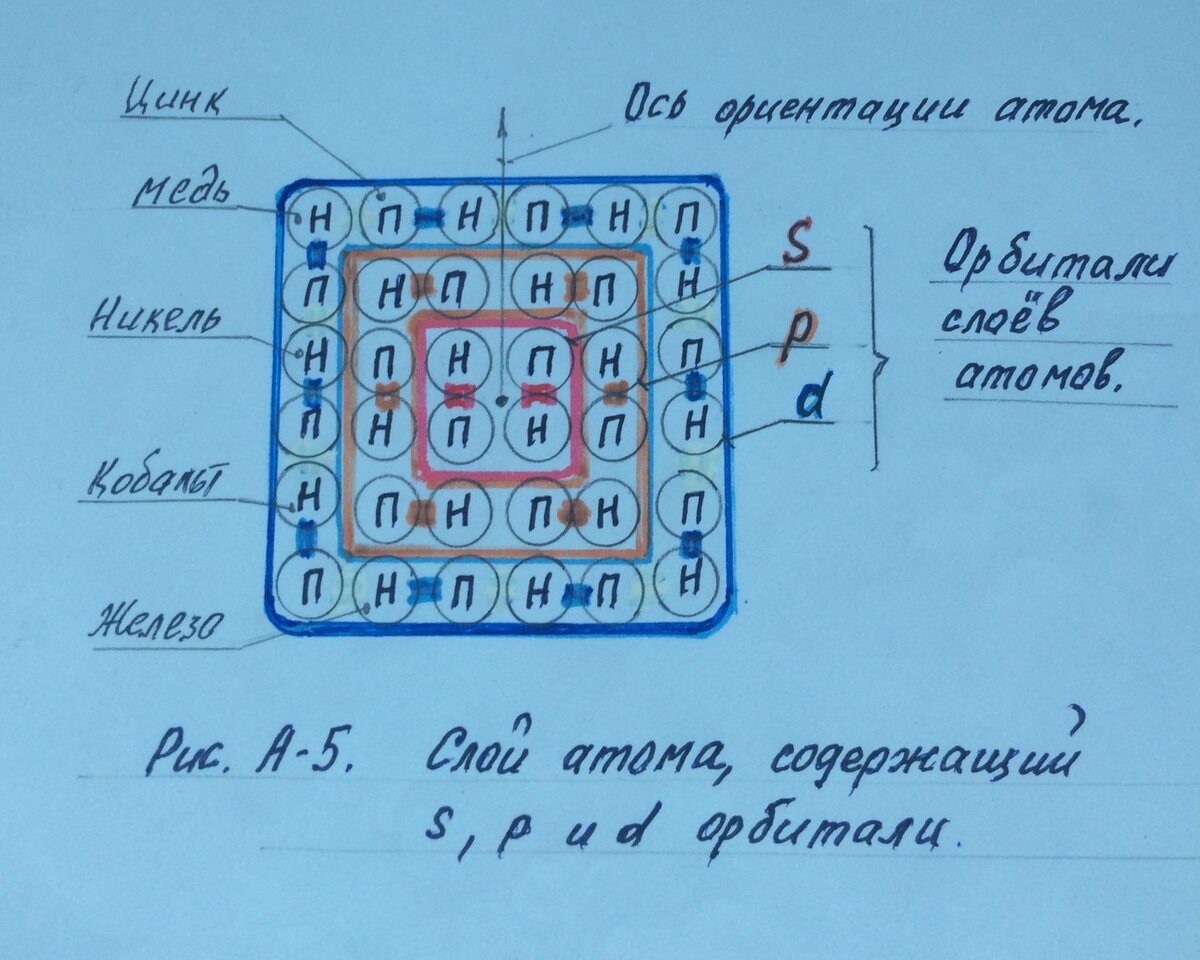 Цинк
Ось ориентации атома.
медь
Н П Н П Н П
S
П Н П Н П Н
Орбитали
слоёв
атомов.
Никель
p
Н П Н П Н П
d
П Н П Н П Н
Кобальт
Н П Н П Н П
Железо
П Н П Н П Н
Рис. А-5. Слой атома, содержащий
s, p и d орбитали.